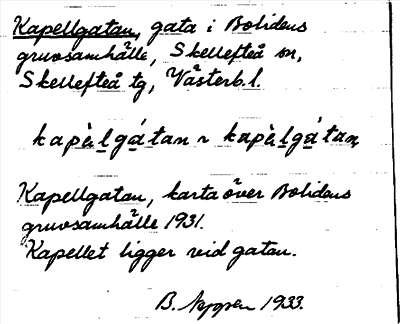 Kapellgatan, gata i Bolidens
gruvsamhälle, Skellefteå sn,
Skellefteå tg, Västerb. l.
kapèlgátan ~ kapèlgátan
Kapellgatan, karta över Bolidens
gruvsamhälle 1931.
Kapellet ligger vid gatan.
B. 1933.